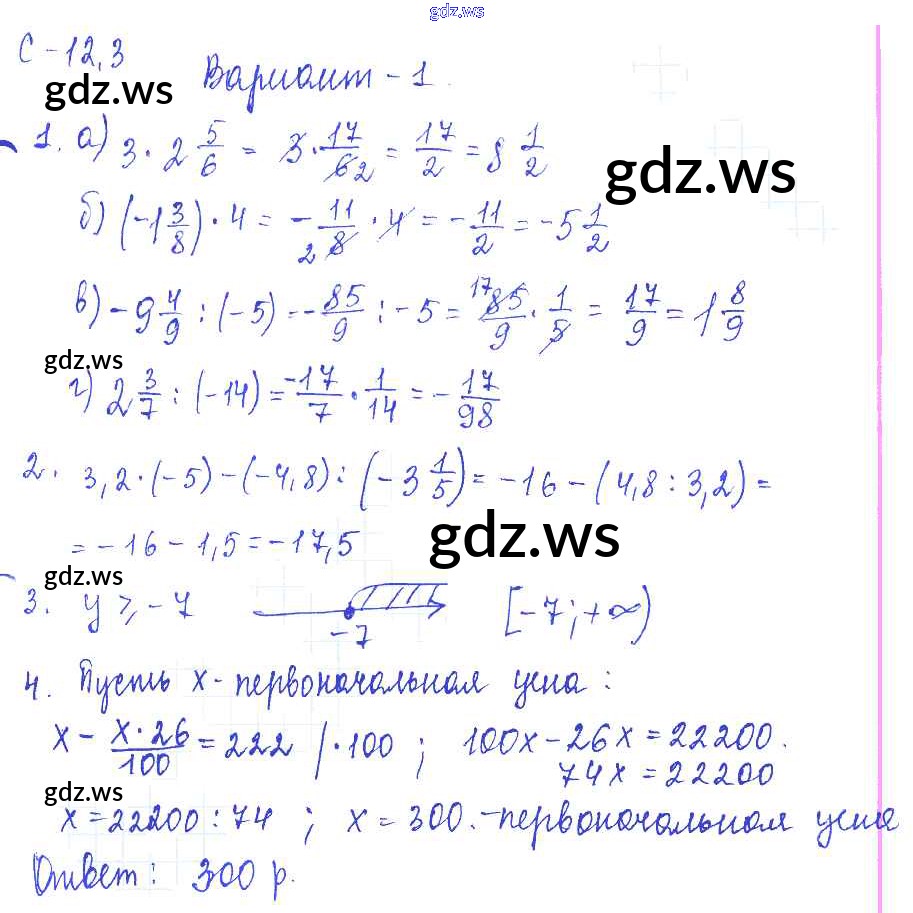 gdz.ws
С-12,3
gdz.ws
Вариант-1.
1. а) 3·2 5/6 = 3·17/6 2 = 17/2 = 8 1/2
gdz.ws
б) (-1 3/8)·4 = -11/2 8·4 = -11/2 = -5 1/2
в) -9 4/9 : (-5) = -85/9 : -5 = 17 85/9 · 1/5 = 17/9 = 1 8/9
gdz.ws
г) 2 3/7 : (-14) = -17/7 · 1/14 = -17/98
2. 3,2·(-5)-(-4,8):(-3 1/5) = -16-(4,8:3,2) =
= -16-1,5 = -17,5
gdz.ws
gdz.ws
3. y ≥ -7 -7 [-7;+∞)
4. Пусть x-первоначальная цена:
x - x·26/100 = 222 /·100 ; 100x-26x = 22200.
74x = 22200
gdz.ws
x = 22200:74 ; x = 300.-первоначальная цена
Ответ: 300 р.